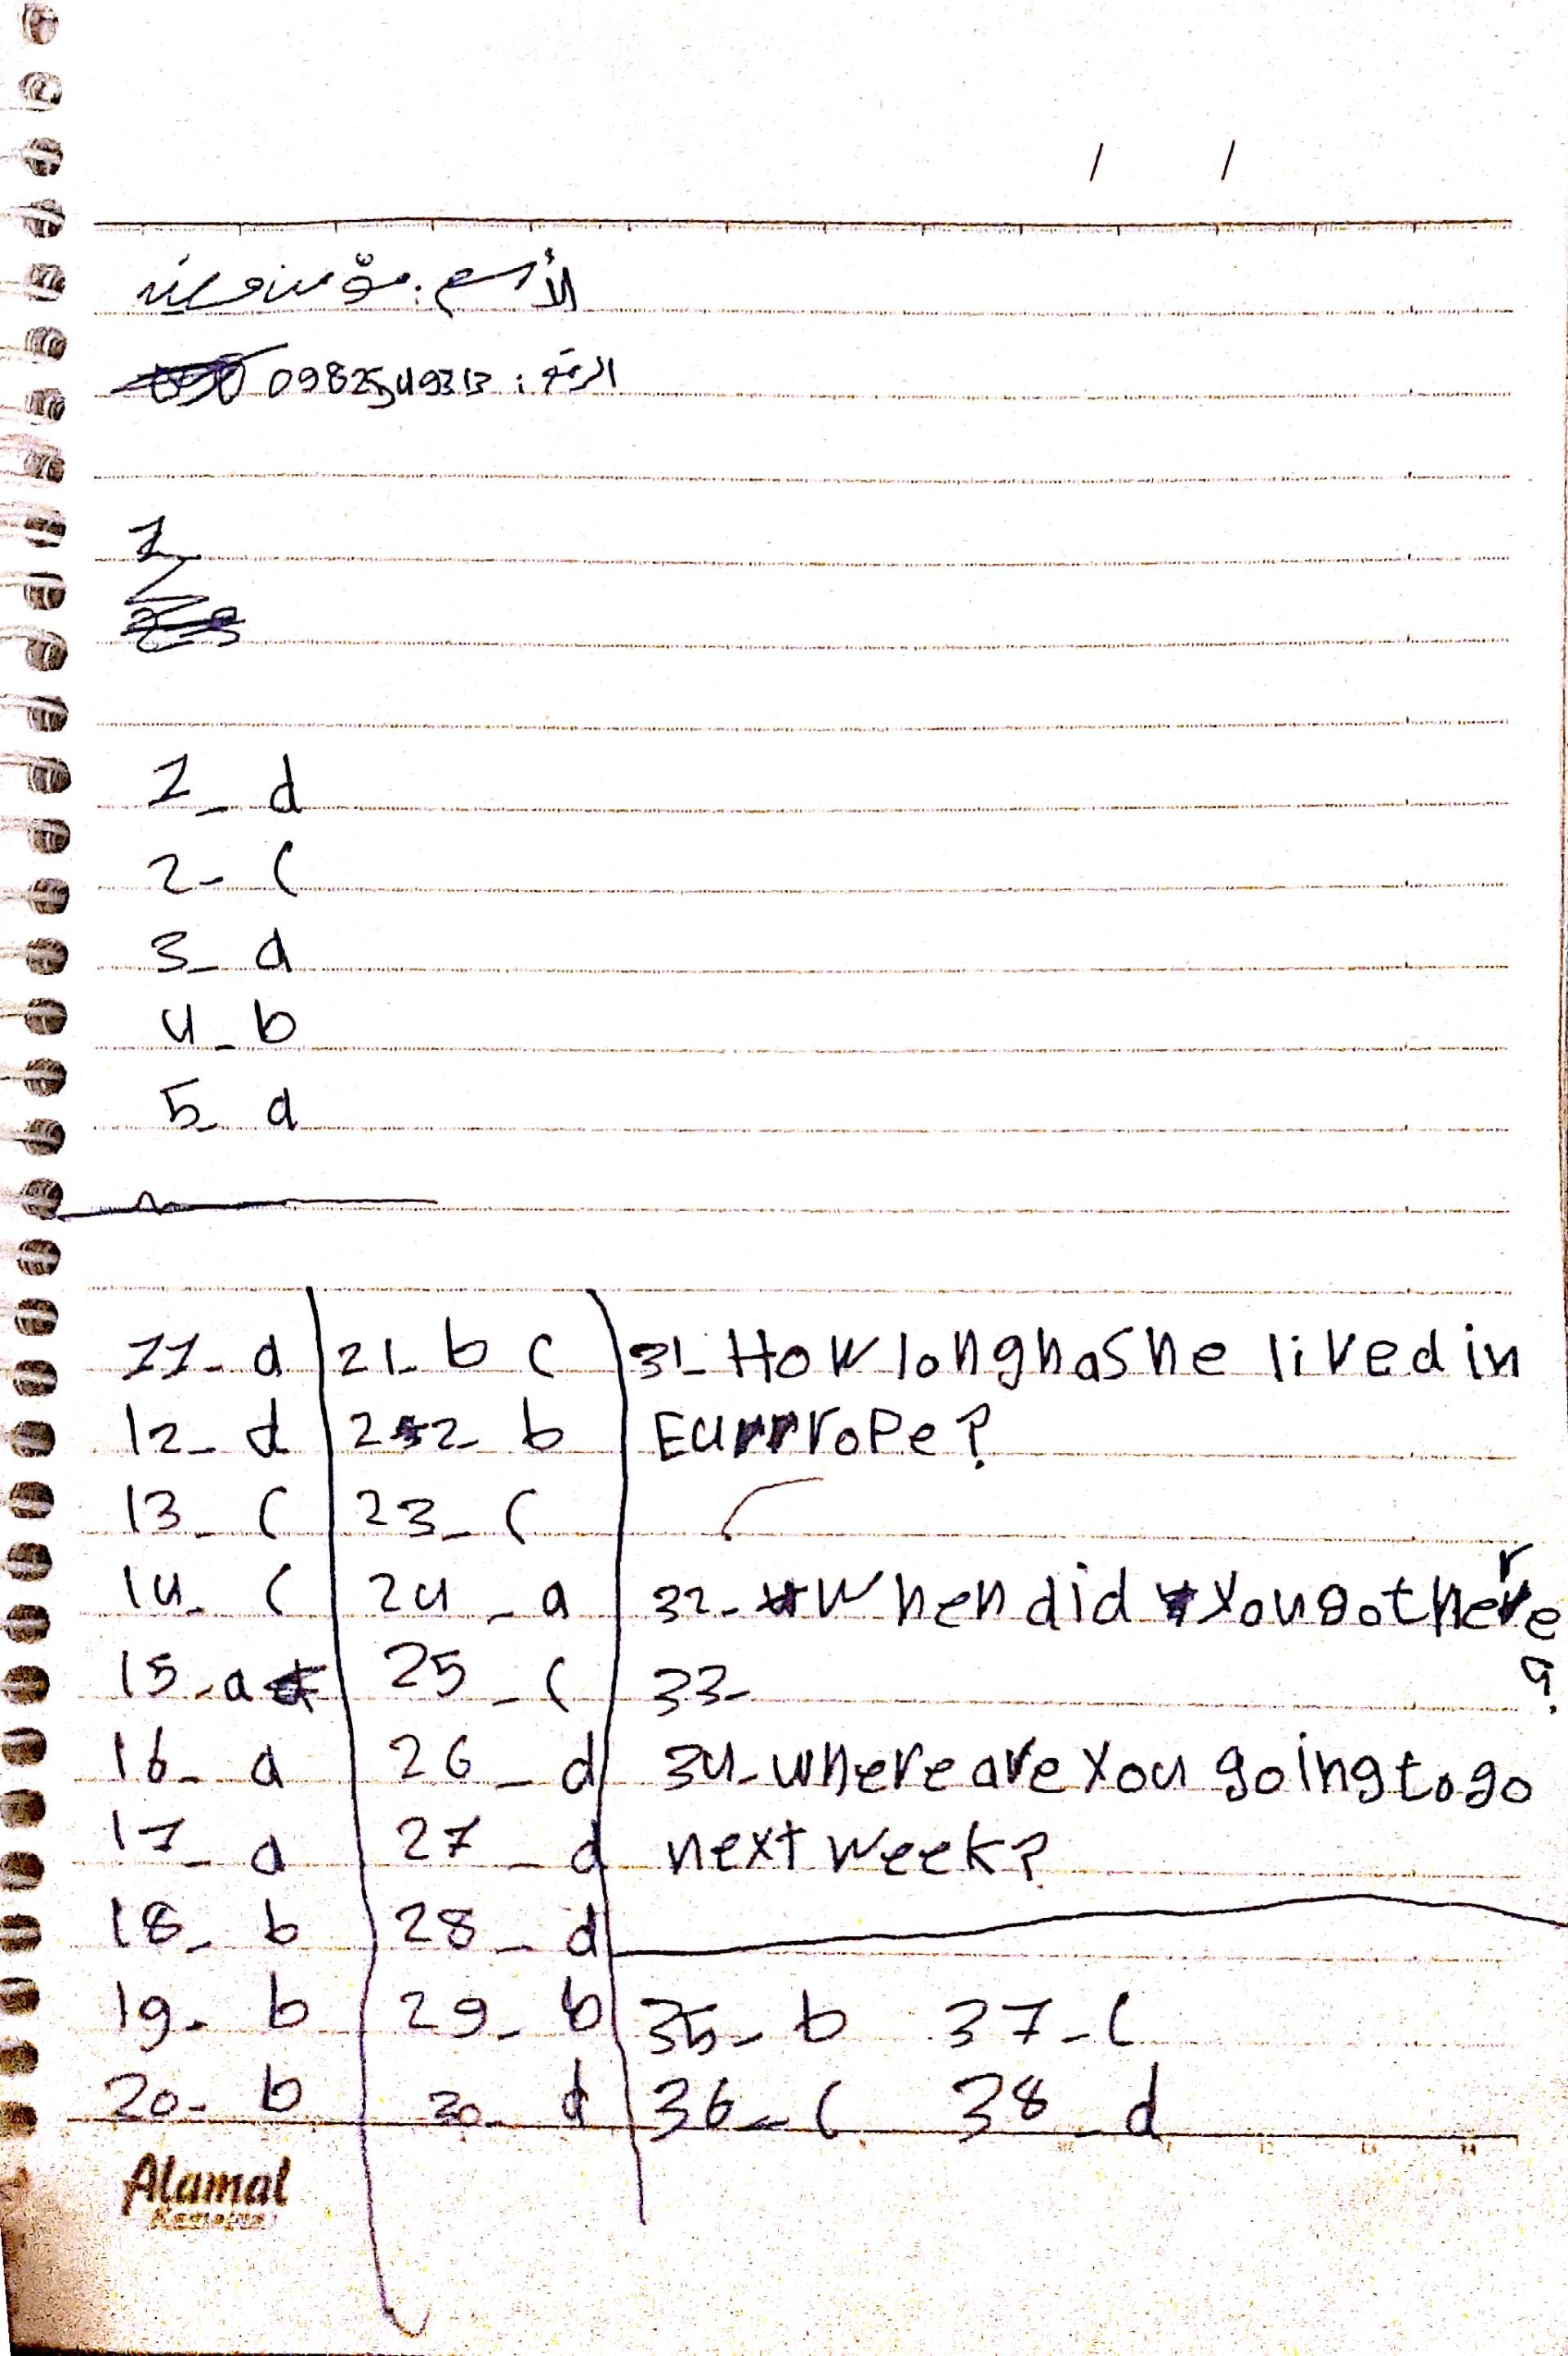 / /
الأسم: مؤمن
الرقم: 0982549313
1
2
1_ d
2- c
3_ a
4_ b
5_ a
11- a
12_ d
13_ c
14_ c
15_a
16_ a
17_ a
18_ b
19_ b
20- b
21_ b c
22_ b
23_ c
24_ a
25_ c
26_ d
27_ d
28_ d
29_ b
30_ d
31_ How long has he lived in
Eurrrope?
32_ When did you go there
?
33_
34_ where are you going to go
next week?
35_ b 37_ c
36_ c 38_ d
Alamal